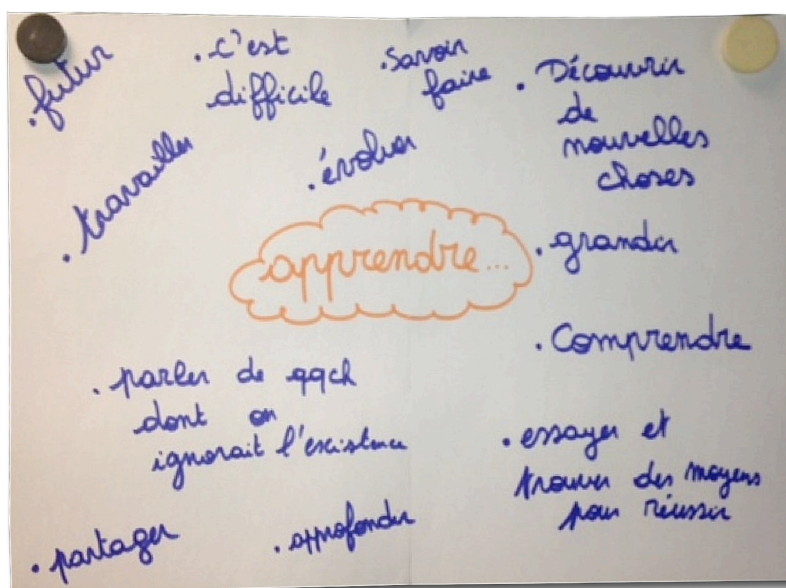 .futur
.c'est
difficile
.savoir
faire
. Découvrir
de
nouvelles
choses
.travailler
.évoluer
apprendre...
.grandir
.Comprendre
.parler de qqch
dont on
ignorait l'existence
.essayer et
trouver des moyens
pour réussir
.partager
.approfondir